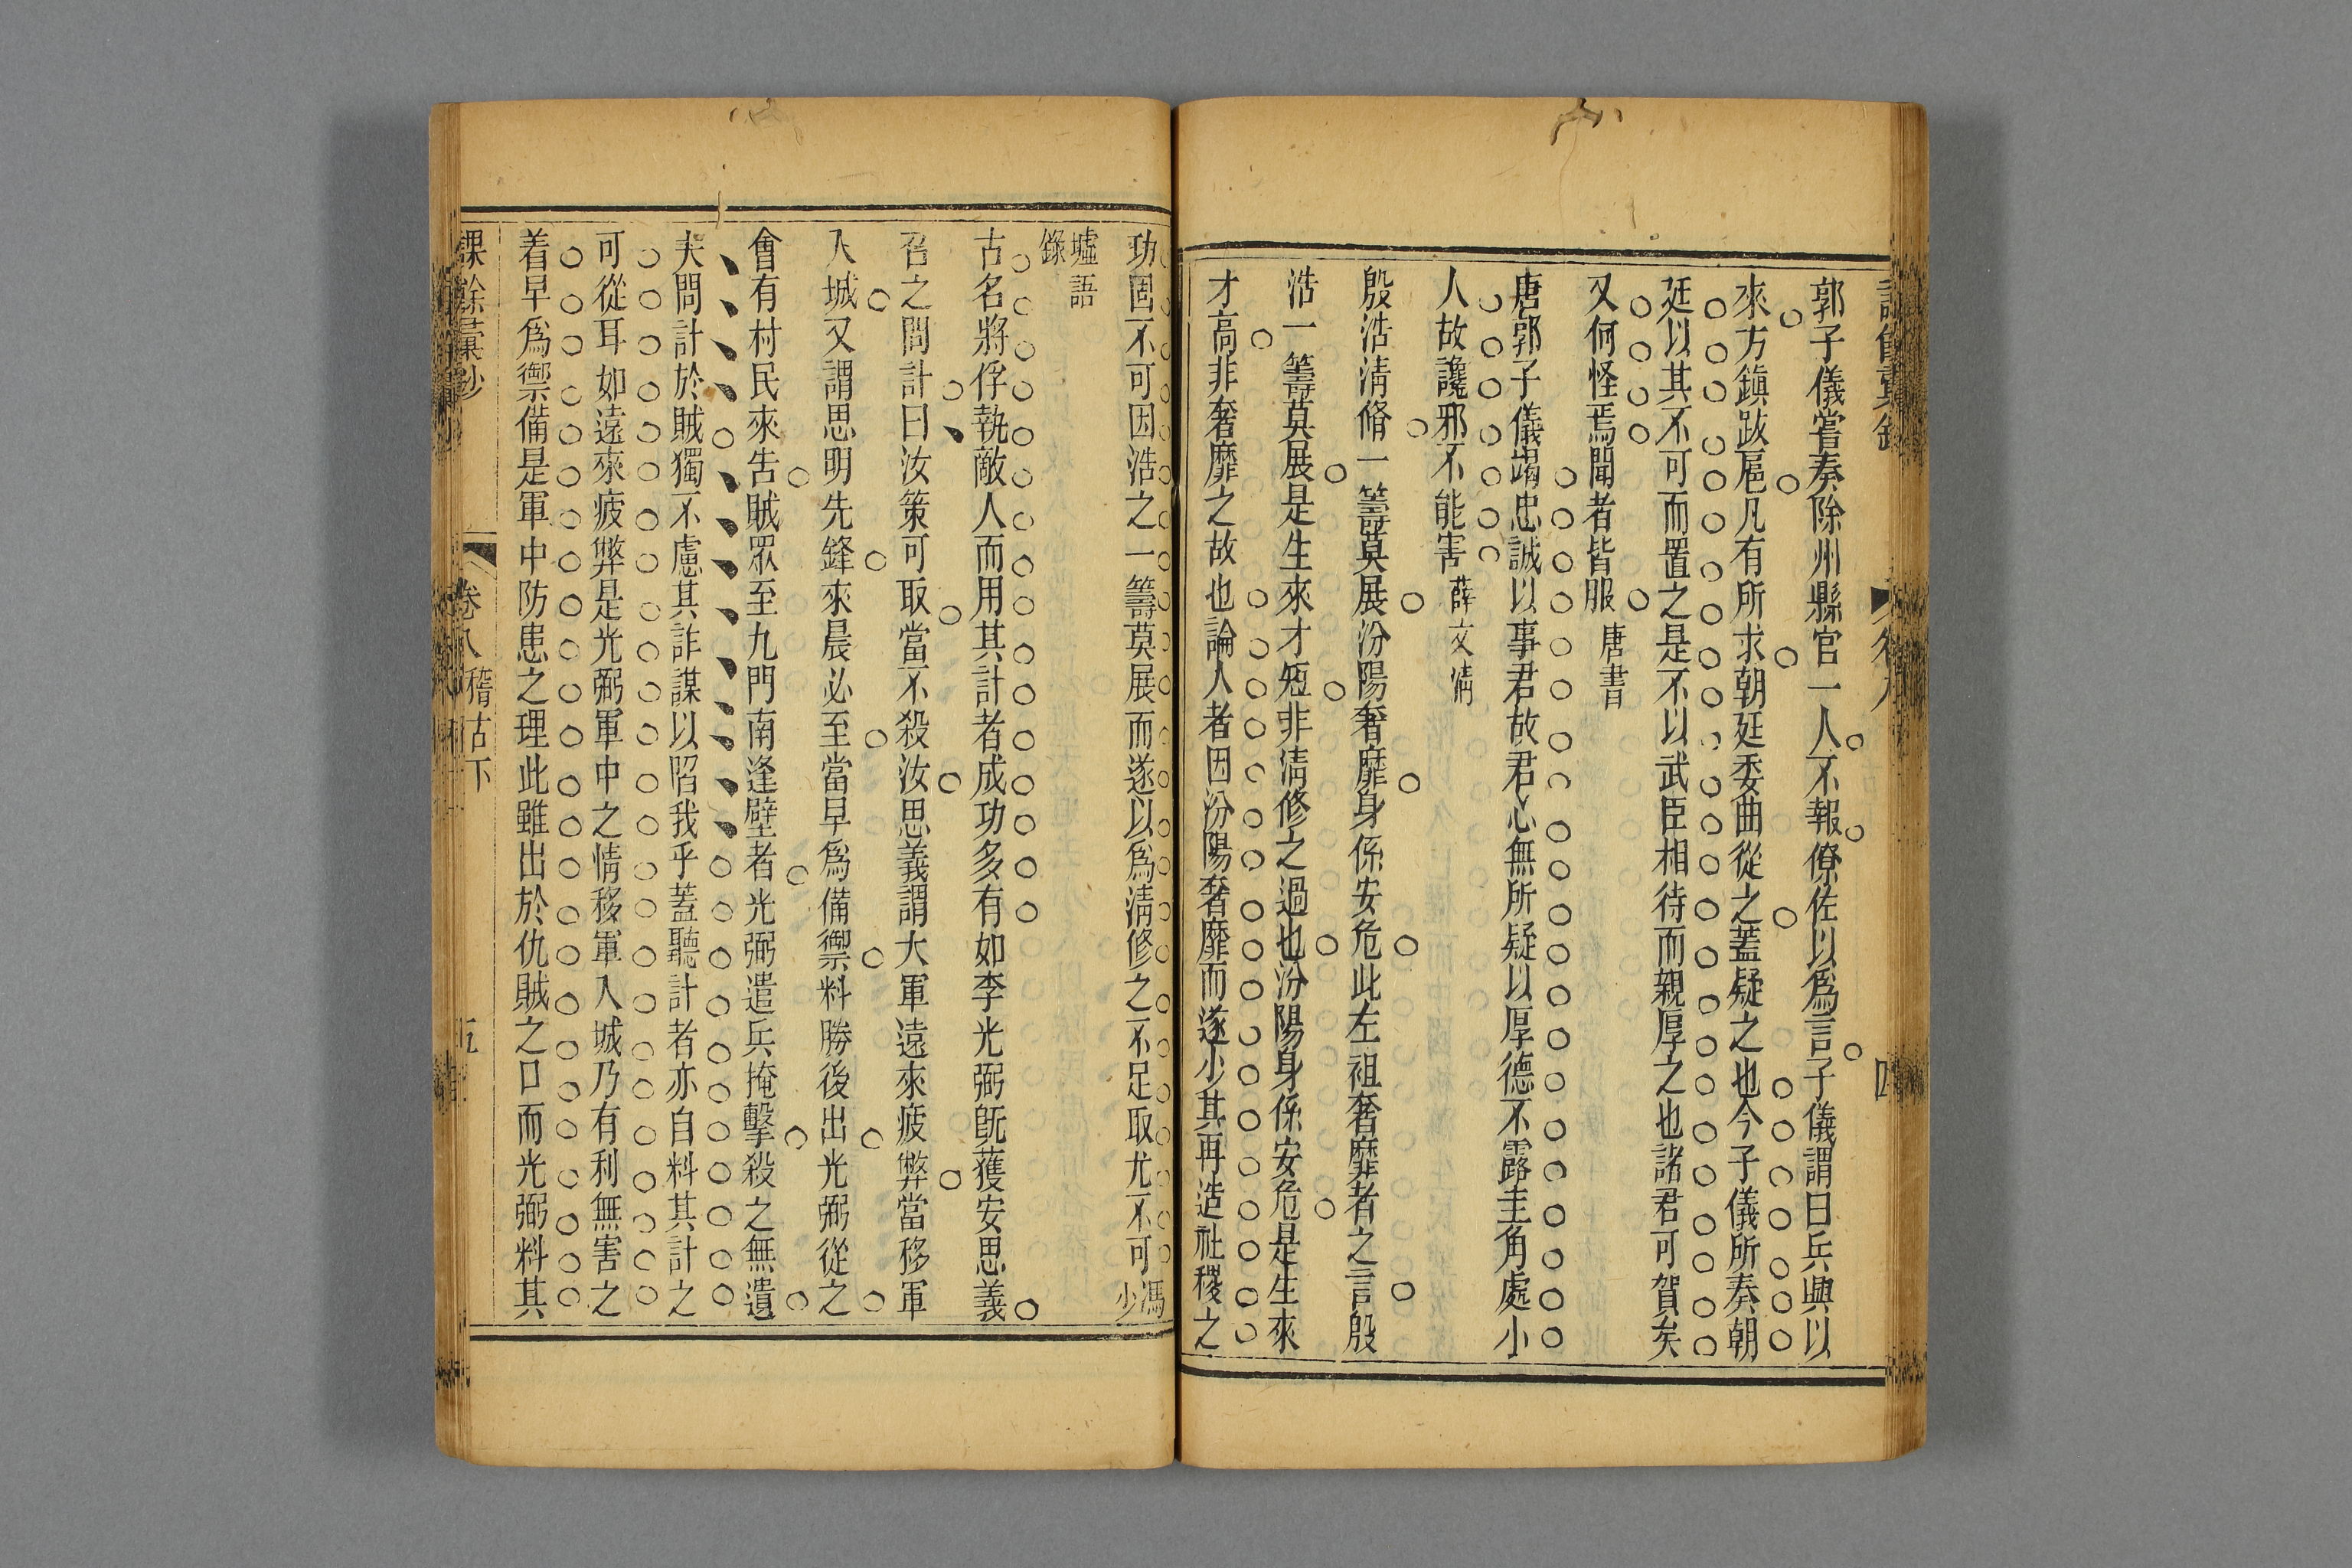 郭子儀嘗奏除州縣官一人不報僚佐以爲言子儀謂曰兵興以
來方鎮跋扈凡有所求朝廷委曲從之蓋疑之也今子儀所奏朝
廷以其不可而置之是不以武臣相待而親厚之也諸君可賀矣
又何怪焉聞者皆服 唐書
唐郭子儀竭忠誠以事君故君心無所疑以厚德不露圭角處小
人故讒邪不能害 薛文清
殷浩清脩一籌莫展汾陽奢靡身係安危此左袒奢靡者之言殷
浩一籌莫展是生來才短非清修之過也汾陽身係安危是生來
才高非奢靡之故也論人者因汾陽奢靡而遂少其再造社稷之
功固不可因浩之一籌莫展而遂以爲清修之不足取尤不可 馮少
墟語
錄
古名將俘執敵人而用其計者成功多有如李光弼旣獲安思義
召之問計曰汝策可取當不殺汝思義謂大軍遠來疲弊當移軍
入城又謂思明先鋒來晨必至當早爲備禦料勝後出光弼從之
會有村民來告賊眾至九門南逢壁者光弼遣兵掩擊殺之無遺
夫問計於賊獨不慮其詐謀以陷我乎蓋聽計者亦自料其計之
可從耳如遠來疲弊是光弼軍中之情移軍入城乃有利無害之
着早爲禦備是軍中防患之理此雖出於仇賊之口而光弼料其
課餘彙鈔
卷八 稽古下
五
四